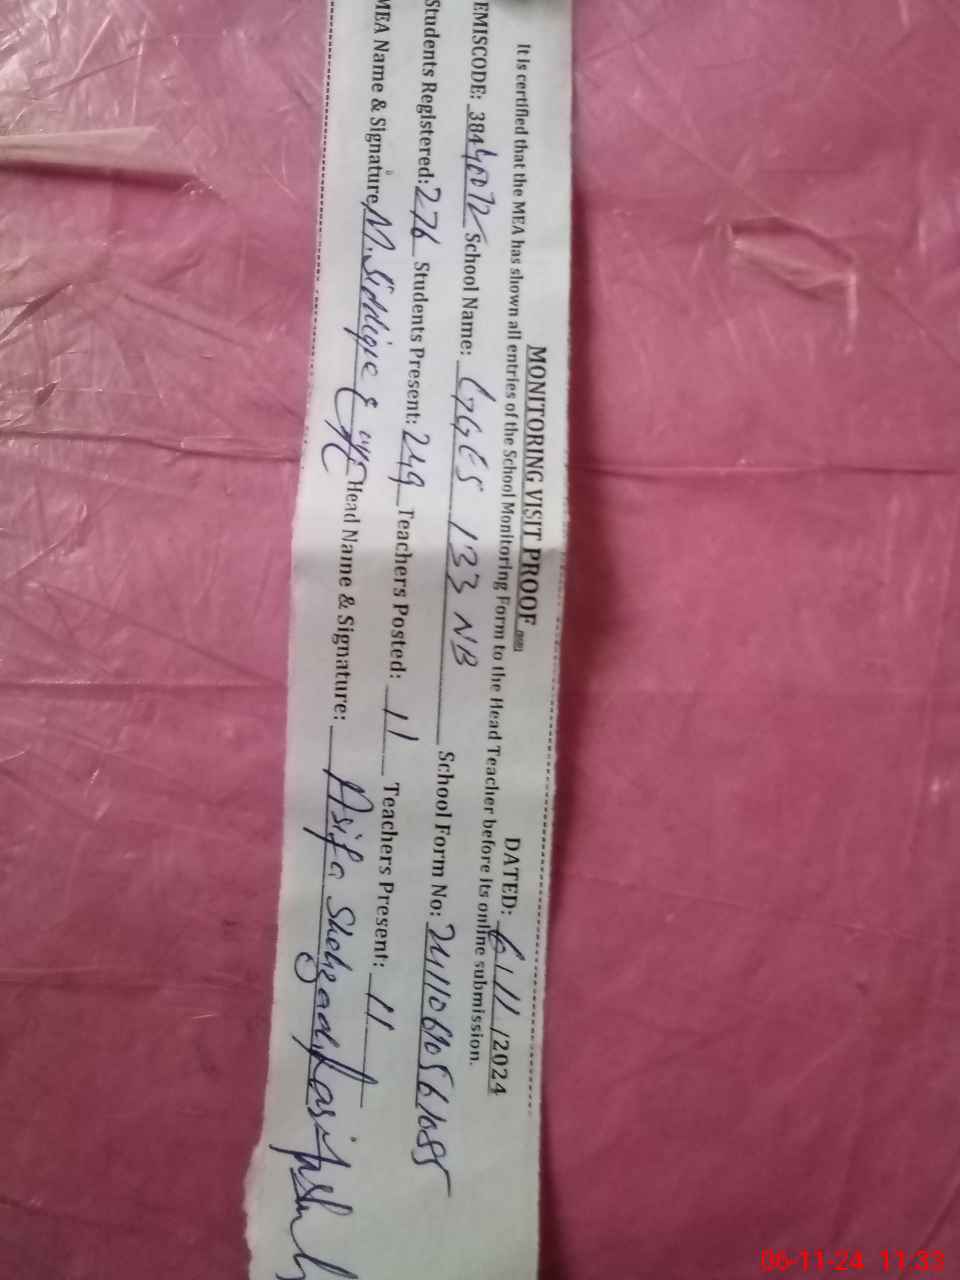 MONITORING VISIT PROOF DATED: 6/11/2024
It is certified that the MEA has shown all entries of the School Monitoring Form to the Head Teacher before its online submission.
EMISCODE: 38440072 School Name: GGES 133 NB School Form No:
Students Registered: 276 Students Present: 249 Teachers Posted: 11 Teachers Present: 11
MEA Name & Signature M. Siddique Head Name & Signature: Asifa Shehzad
06-11-24 11:33